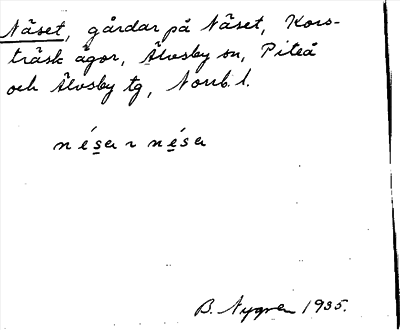 Näset, gårdar på Näset, Kors-
träsk ägor, Älvsby sn, Piteå
och Älvsby tg, Norrb. l.
B. Nygren 1935.